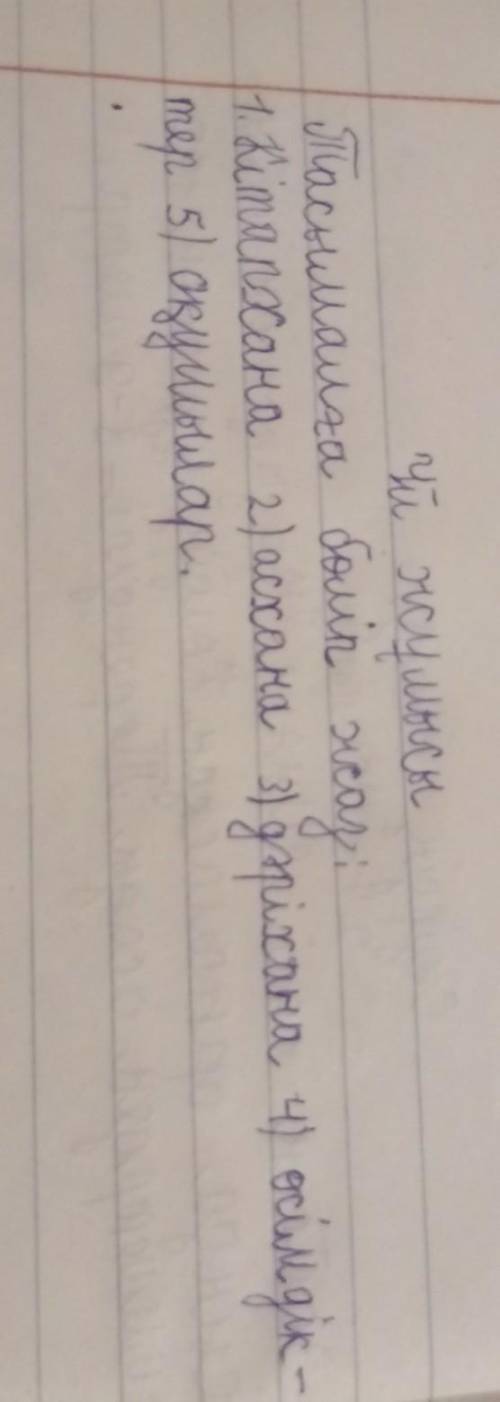 Үй жұмысы
Тасымалға бөліп жаз;
1. Кітапхана 2) асхана 3) дәріхана 4) өсімдік-
тер 5) оқушылар.